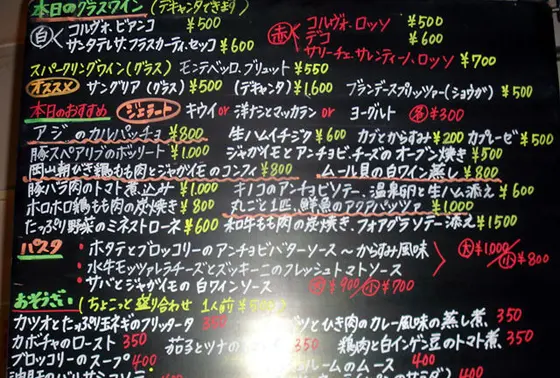 本日のグラスワイン (デキャンタできます)
白 コルヴォ、ビアンコ ¥500
サンタテレサ、フラスカーティ、セッコ ¥600
赤 コルヴォ、ロッソ ¥500
デコ ¥600
サリーチェ、サレンティーノ、ロッソ ¥700
スパークリングワイン(グラス) モンテベッロ、ブリュット ¥550
オススメ サングリア(グラス) ¥500 (デキャンタ) ¥1,600 ブランデースプリッツァー(ショウが) ¥500
本日のおすすめ ジェラート キウイ or 洋ナシとマッカラン or ヨーグルト 各¥300
アジのカルパッチョ ¥800 生ハムイチジク ¥600 カブとからすみ ¥200 カプレーゼ ¥500
豚スペアリブのボッリート ¥1,000 ジャガイモとアンチョビ、チーズのオーブン焼き ¥500
岡山朝びき鶏もも肉とジャガイモのコンフィ ¥800 ムール貝の白ワイン蒸し ¥800
豚バラ肉のトマト煮込み ¥1,000 キノコのアンチョビソテー、温泉卵と生ハム添え ¥600
ホロホロ鶏もも肉の炭焼き ¥800 丸ごと1匹、鮮魚のアクアパッツァ ¥1,000
たっぷり野菜のミネストローネ ¥600 和牛もも肉の炭焼、フォアグラソテー添え ¥1500
パスタ
・ホタテとブロッコリーのアンチョビバターソース〜からすみ風味
・水牛モッツァレラチーズとズッキーニのフレッシュトマトソース
大 ¥1,000 小 ¥800
・サバとジャガイモの白ワインソース 大 ¥900 小 ¥700
おそうざい (ちょこっと盛り合わせ 1人前
カツオとたっぷり玉ネギのフリッタータ 350
ツとひき肉のカレー風味の蒸し煮 350
カボチャのロースト 350 茄子とツナの 鶏肉と白インゲン豆のトマト煮 350
ブロッコリーのスープ 400
ルームのムース 400